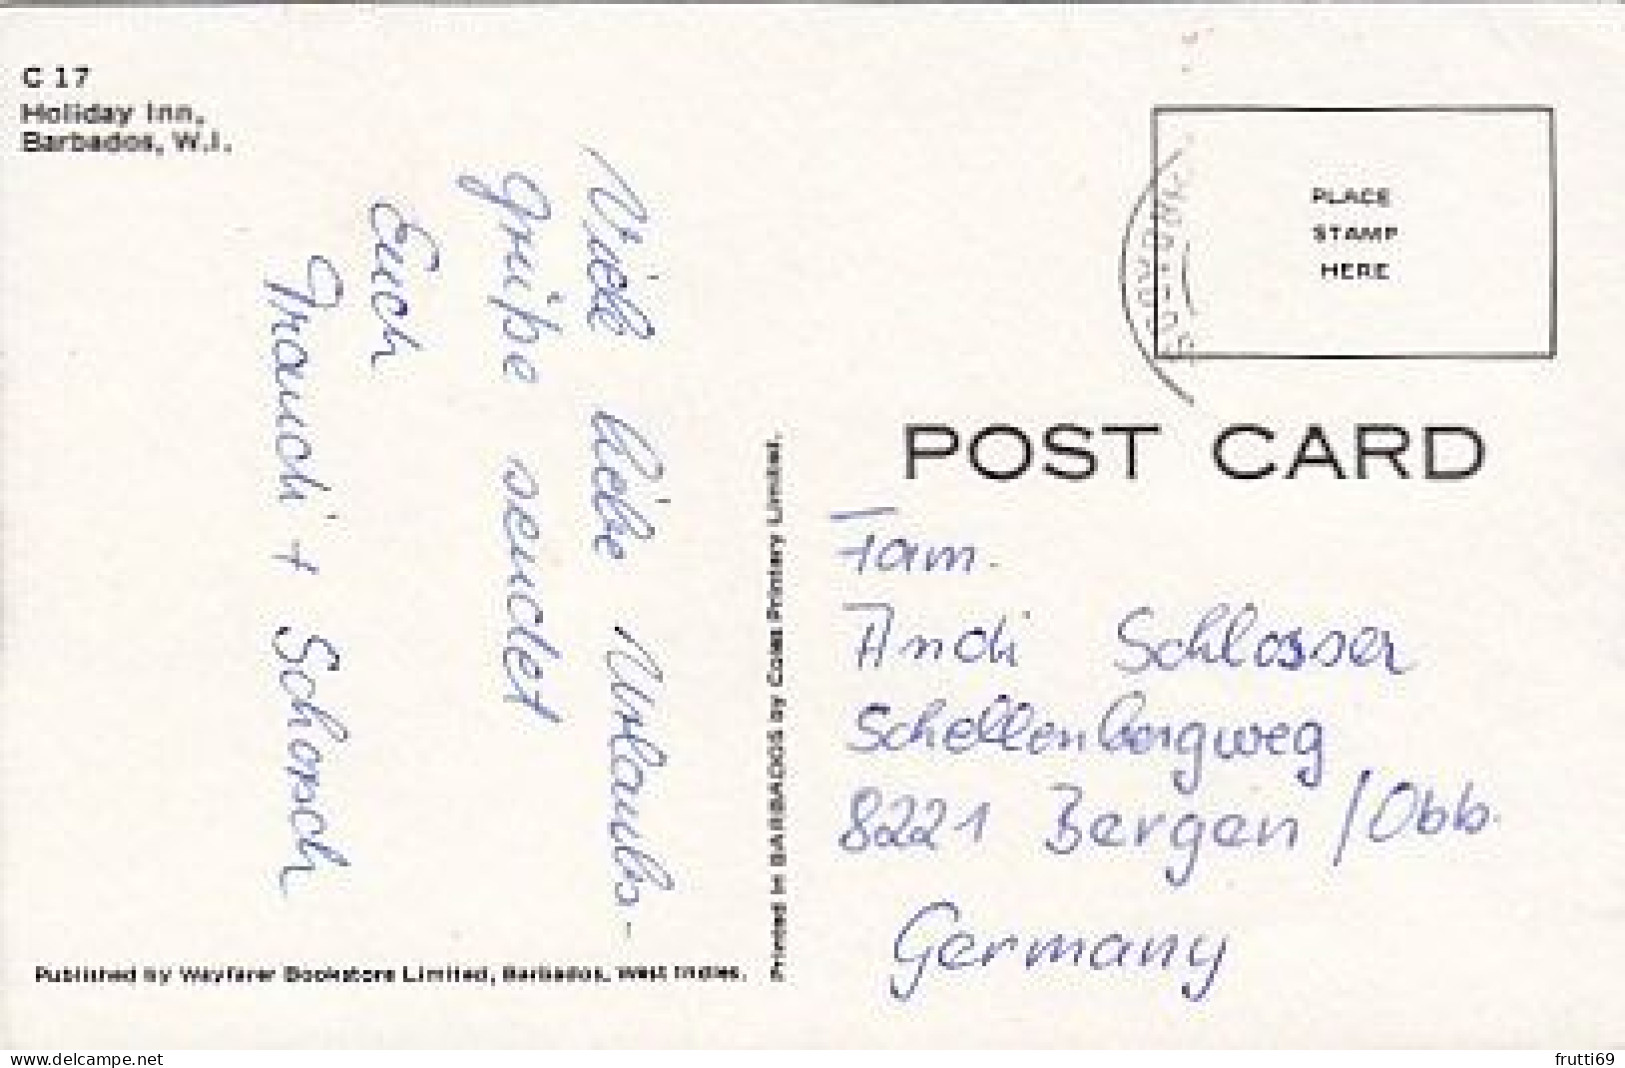 C 17
Holiday Inn,
Barbados, W.I.
Viele liebe Urlaubs-
grüße sendet
Euch
Franchi + Schorsch
Published by Wayfarer Bookstore Limited, Barbados, West Indies.
Printed in BARBADOS by Coles Printery Limited.
PLACE
STAMP
HERE
POST CARD
Fam.
Andi Schlosser
Schellenbergweg
8221 Bergen / Obb.
Germany
www.delcampe.net
frutti69